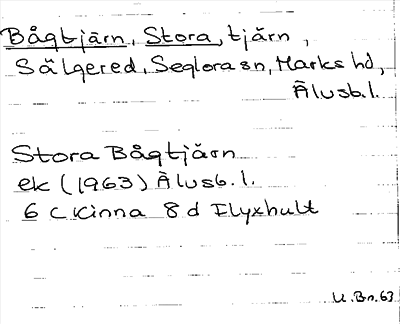 Bågtjärn, Stora, tjärn,
Sälgered, Seglora sn, Marks hd,
Älvsb.l.
Stora Bågtjärn
ek (1963) Älvsb.l.
6 C Kinna 8 d Flyxhult
U.Bn.63